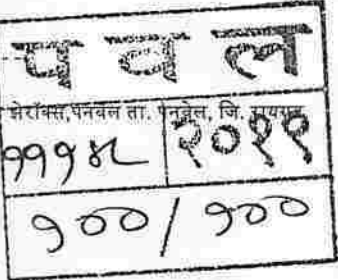 प व ल
झेरॉक्स,पनवेल ता. पनवेल, जि. रायगड
१११४८ २०१९
१००/१००